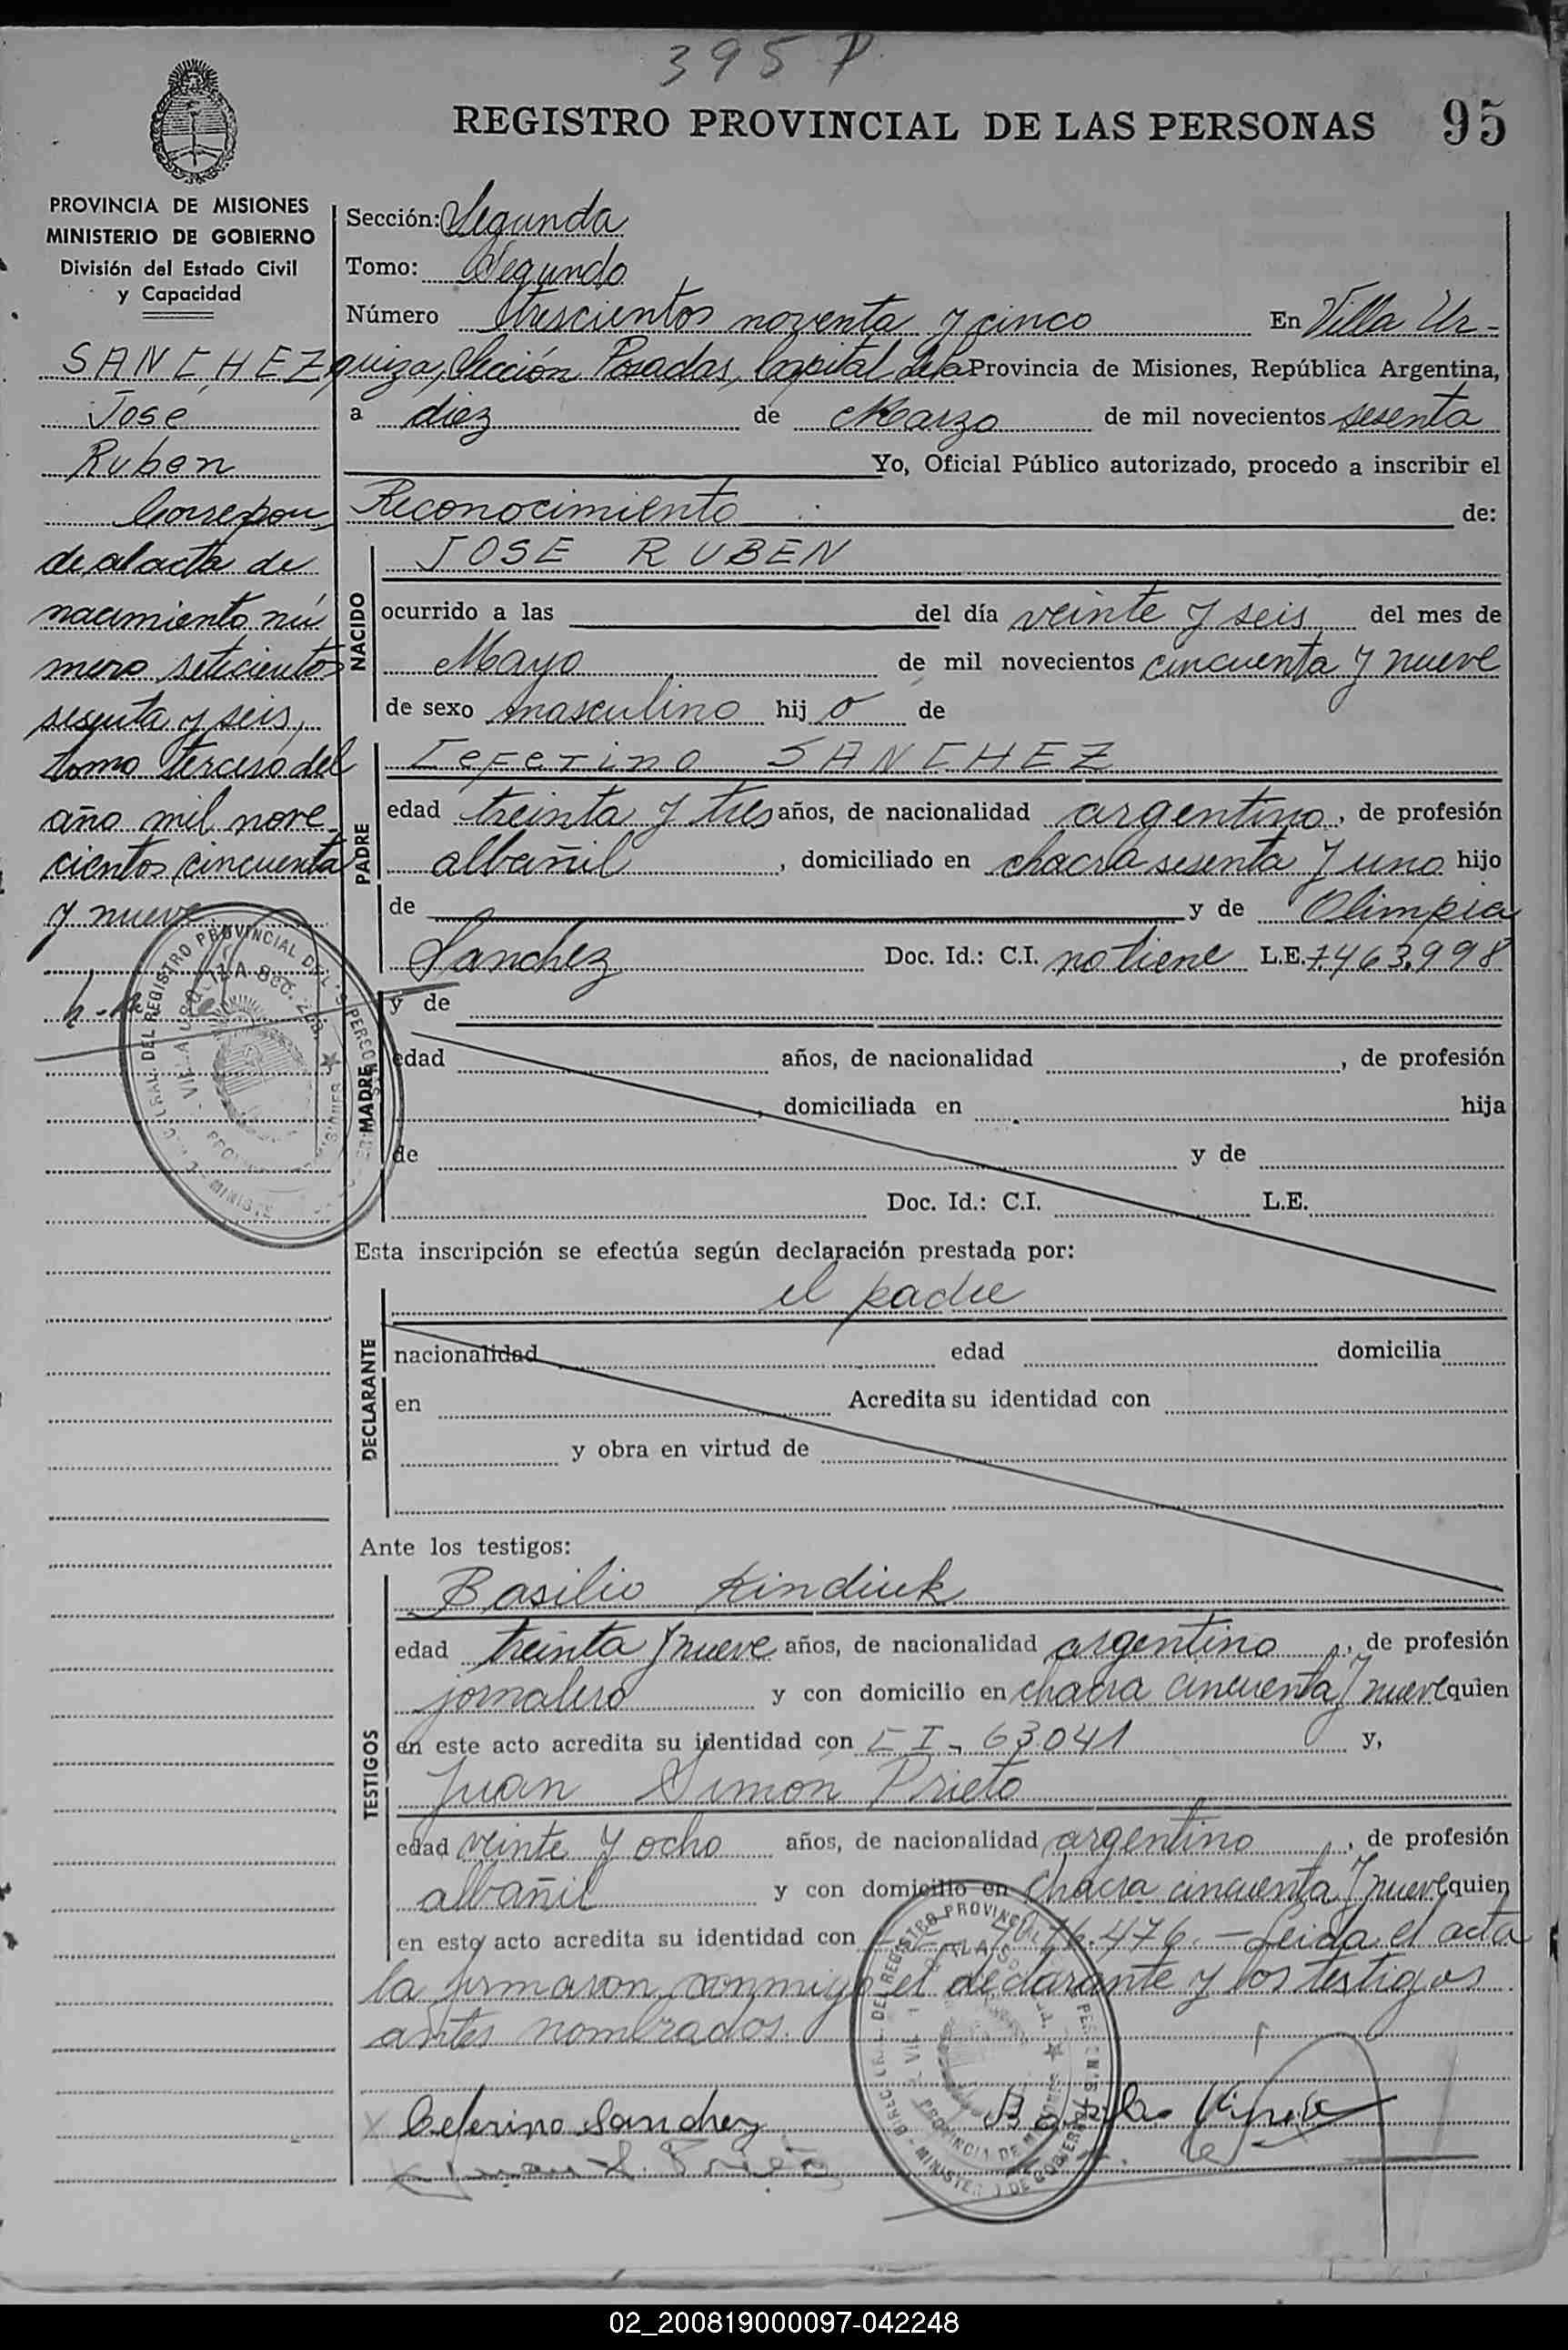 395 P.
REGISTRO PROVINCIAL DE LAS PERSONAS 95
PROVINCIA DE MISIONES
MINISTERIO DE GOBIERNO
División del Estado Civil
y Capacidad
SANCHEZ
José
Ruben
Correspon
de al acta de
nacimiento nú
mero seticientos
sesenta y seis,
tomo tercero del
año mil nove
cientos cincuenta
y nueve
Sección: Segunda
Tomo: Segundo
Número trescientos noventa y cinco En Villa Ur-
quiza, Sección Posadas, Capital de la Provincia de Misiones, República Argentina,
a diez de Marzo de mil novecientos sesenta
Yo, Oficial Público autorizado, procedo a inscribir el
Reconocimiento de:
NACIDO
JOSE RUBEN
ocurrido a las del día veinte y seis del mes de
Mayo de mil novecientos cincuenta y nueve
de sexo masculino hij o de
PADRE
Ceferino SANCHEZ
edad treinta y tres años, de nacionalidad argentino, de profesión
albañil, domiciliado en chacra sesenta y uno hijo
de y de Olimpia
Sanchez Doc. Id.: C.I. no tiene L.E. 7.463.998
MADRE
y de
edad años, de nacionalidad , de profesión
, domiciliada en hija
de y de
Doc. Id.: C.I. L.E.
Esta inscripción se efectúa según declaración prestada por:
DECLARANTE
el padre
nacionalidad edad domicilia
en Acredita su identidad con
y obra en virtud de
Ante los testigos:
TESTIGOS
Basilio Kindiuk
edad treinta y nueve años, de nacionalidad argentino, de profesión
jornalero y con domicilio en chacra cincuenta y nueve quien
en este acto acredita su identidad con C I - 63041 y,
Juan Simon Prieto
edad veinte y ocho años, de nacionalidad argentino, de profesión
albañil y con domicilio en chacra cincuenta y nueve quien
en este acto acredita su identidad con 476.- Leida el acta
la firmaron conmigo el declarante y los testigos
antes nombrados.
Ceferino Sanchez
Juan S. Prieto
02_200819000097-042248